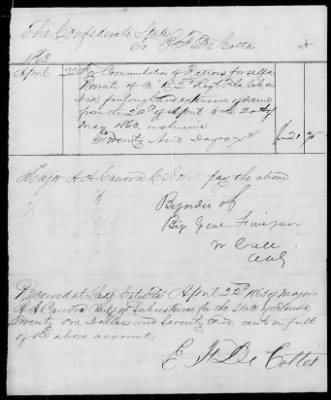 The Confederate States
To E H De Cottes Dr
1863
April 22 For Commutation of Rations for self a
Private of Co "K" 2d Regt Fla Cav on
Sick furlough &
from the 22d of April to the 20th of
May 1863 inclusive
Twenty Nine Days $21 75
Major A A Canova C. S. will pay the above
By order of
Brig Genl Finegan
W Call
AAG
Received at April 22d 1863 of Major
A A Canova Chief of Subsistence for the State of Florida
Twenty one Dollars and Seventy five cents in full
of the above account
E H De Cottes